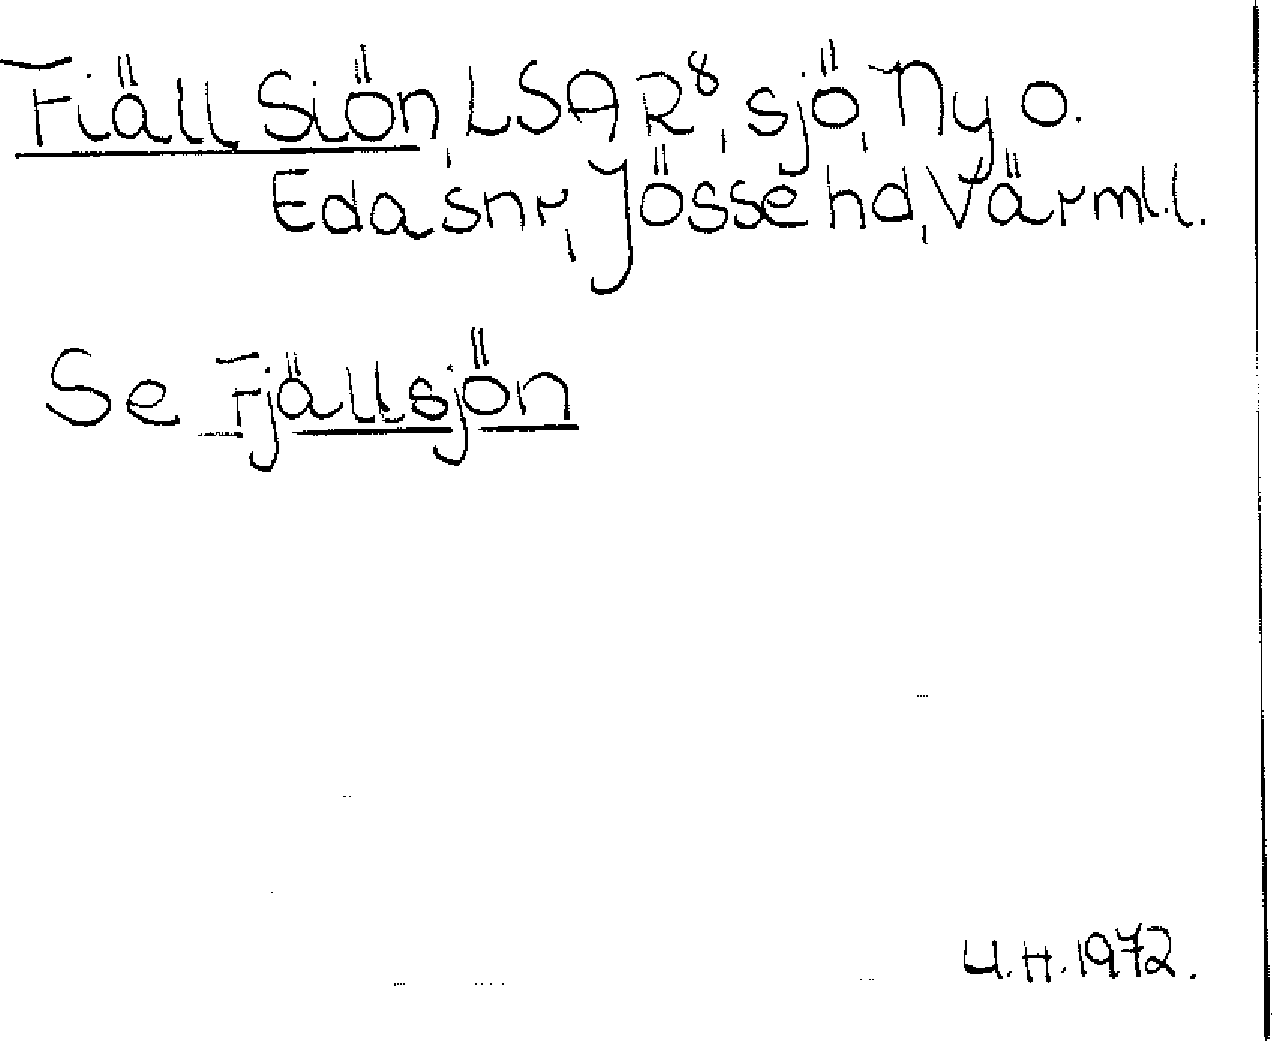 Fiäll Siön, LSAR⁸, sjö, Ny o.
Eda snr, Jösse hd, Värml.l.
Se Fjällsjön
U.H. 1972.